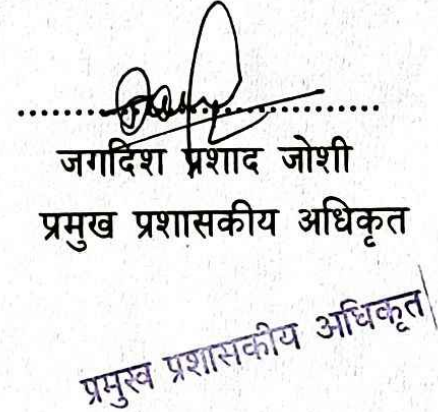 जगदिश प्रशाद जोशी
प्रमुख प्रशासकीय अधिकृत
प्रमुख प्रशासकीय अधिकृत